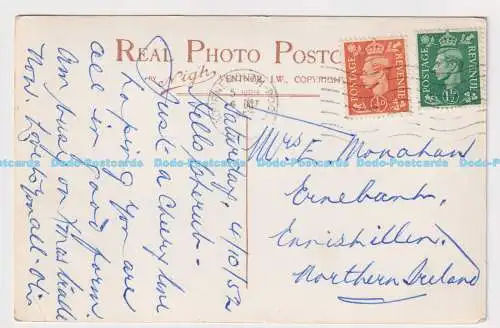 REAL PHOTO POSTC
BY Nigh
VENTNOR, I.W. COPYRIGHT
POSTAGE REVENUE
POSTAGE REVENUE
Saturday, 4/10/52
Hello
Just a cheery line
hoping you are
all in good form.
Am busy on Xmas trade
now. Love to you all.
Mrs E. Monahan
Ernebank,
Enniskillen.
Northern Ireland
Dodo-Postcards Dodo-Postcards Dodo-Postcards Dodo-Postcards